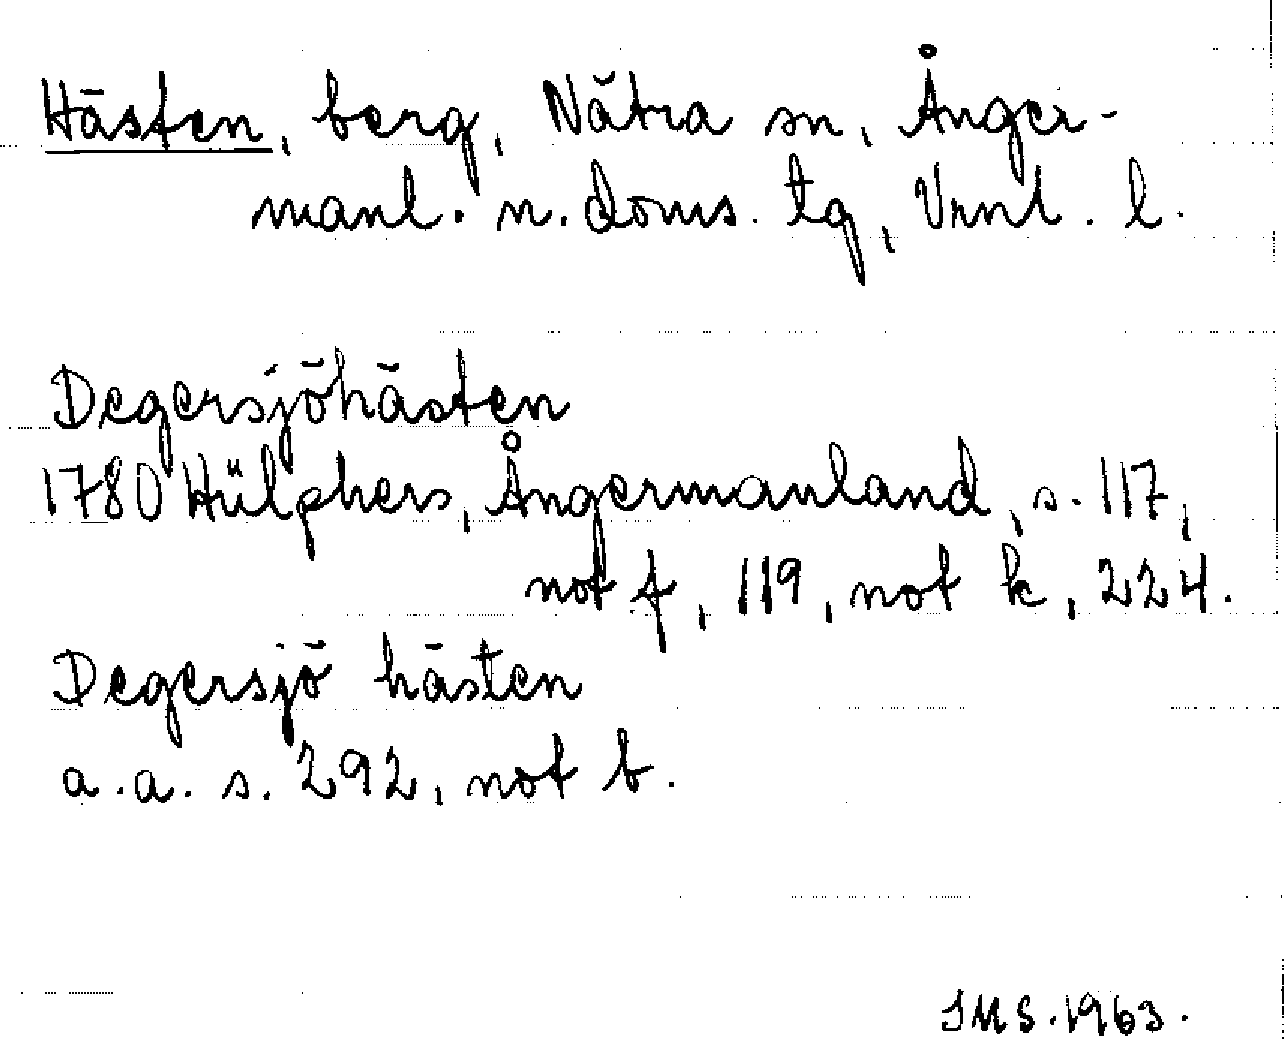 Hästen, berg, Nätra sn, Ånger-
manl. n. doms. tg, Vrnl. l.
Degersjöhästen
1780 Hülphers, Ångermanland, s. 117,
not f, 119, not k, 224.
Degersjö hästen
a.a. s. 292, not b.
IMS. 1963.